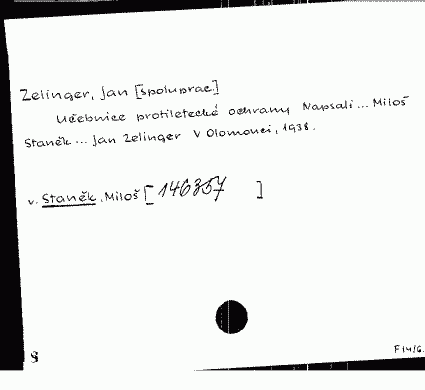 Zelinger, Jan [spoluprac.]
Učebnice protiletecké ochrany Napsali... Miloš
Staněk... Jan Zelinger V Olomouci, 1938.
v. Staněk, Miloš [146357 ]
§
F 14/6.